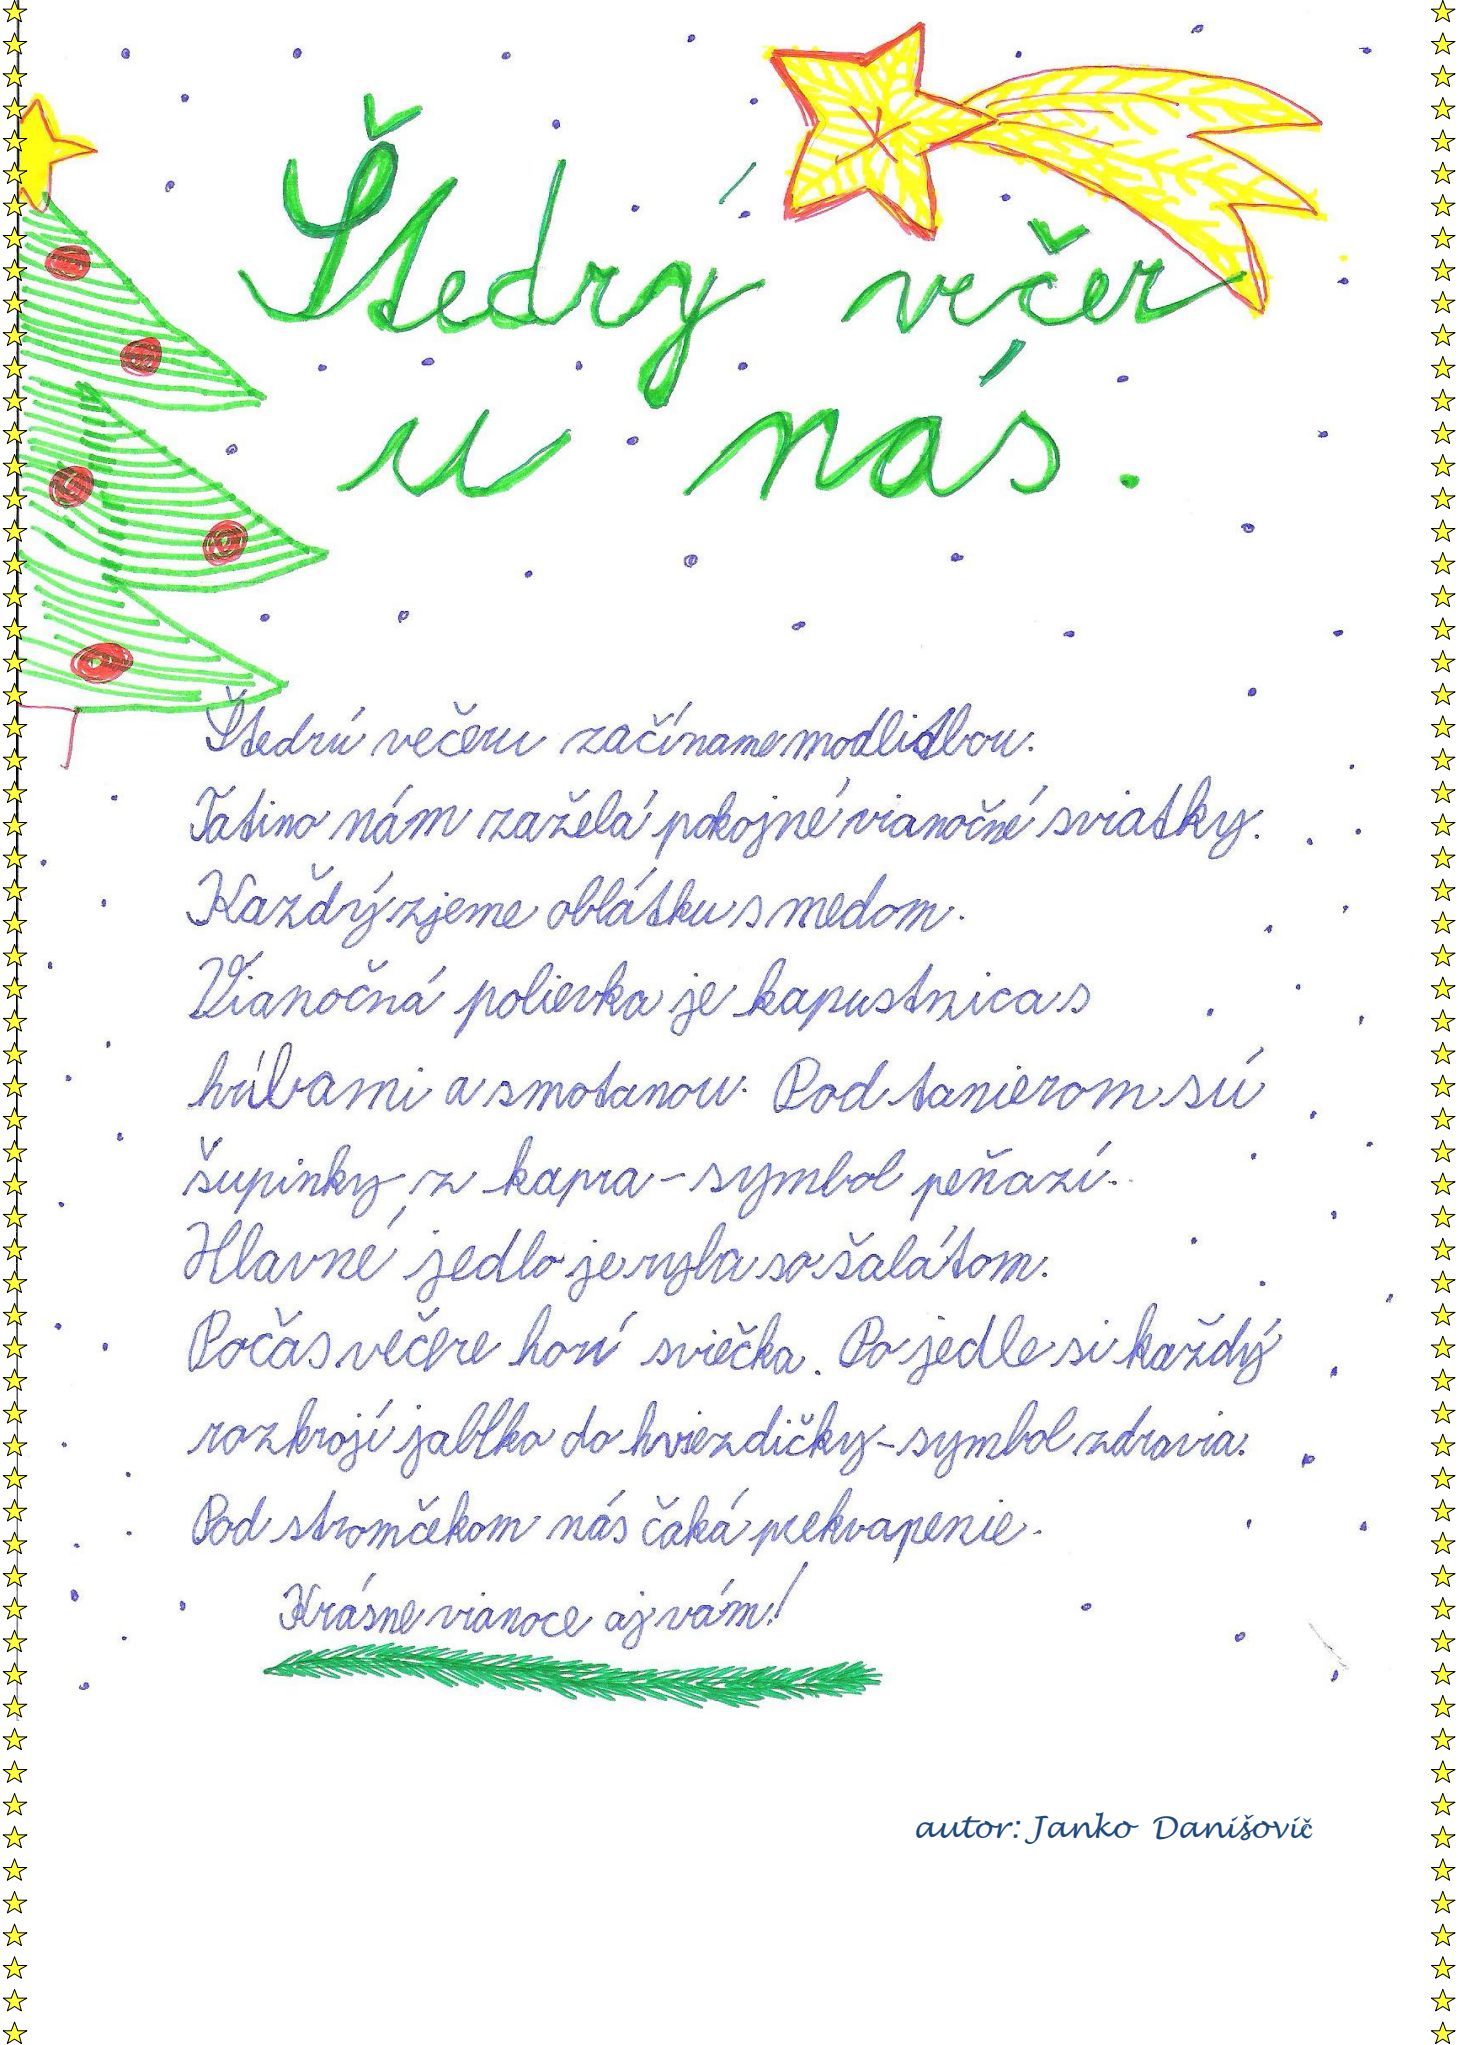 Štedrý večer
u nás.
Štedrú večeru začíname modlidbou.
Tatino nám zaželá pokojné vianočné sviatky.
Každý zjeme oblátku s medom.
Vianočná polievka je kapustnica s
hríbami a smotanou. Pod tanierom sú
šupinky z kapra - symbol peňazí.
Hlavné jedlo je ryba so šalátom.
Počas večere horí sviečka. Po jedle si každý
rozkrojí jablko do hviezdičky - symbol zdravia.
Pod stromčekom nás čaká prekvapenie.
Krásne vianoce aj vám!
autor: Janko Danišovič